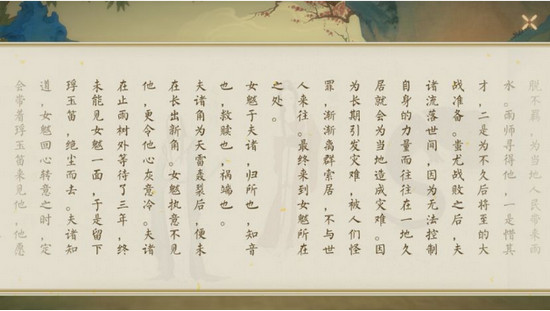 脱不羁，为当地人民带来雨
水。雨师寻得他，一是惜其
才，二是为不久后将至的大
战准备。蚩尤战败之后，夫
诸流落世间，因为无法控制
自身的力量而往往在一地久
居就会为当地造成灾难。因
为长期引发灾难，被人们怪
罪，渐渐离群索居，不与世
人来往。最终来到女魃所在
之处。
女魃于夫诸，归所也，知音
也，救赎也，祸端也。
夫诸角为天雷轰裂后，便未
在长出新角。女魃执意不见
他，更令他心灰意冷。夫诸
在止雨树外等待了三年，终
未能见女魃一面，于是留下
琈玉笛，绝尘而去。夫诸知
道，女魃回心转意之时，定
会带着琈玉笛来见他，他愿